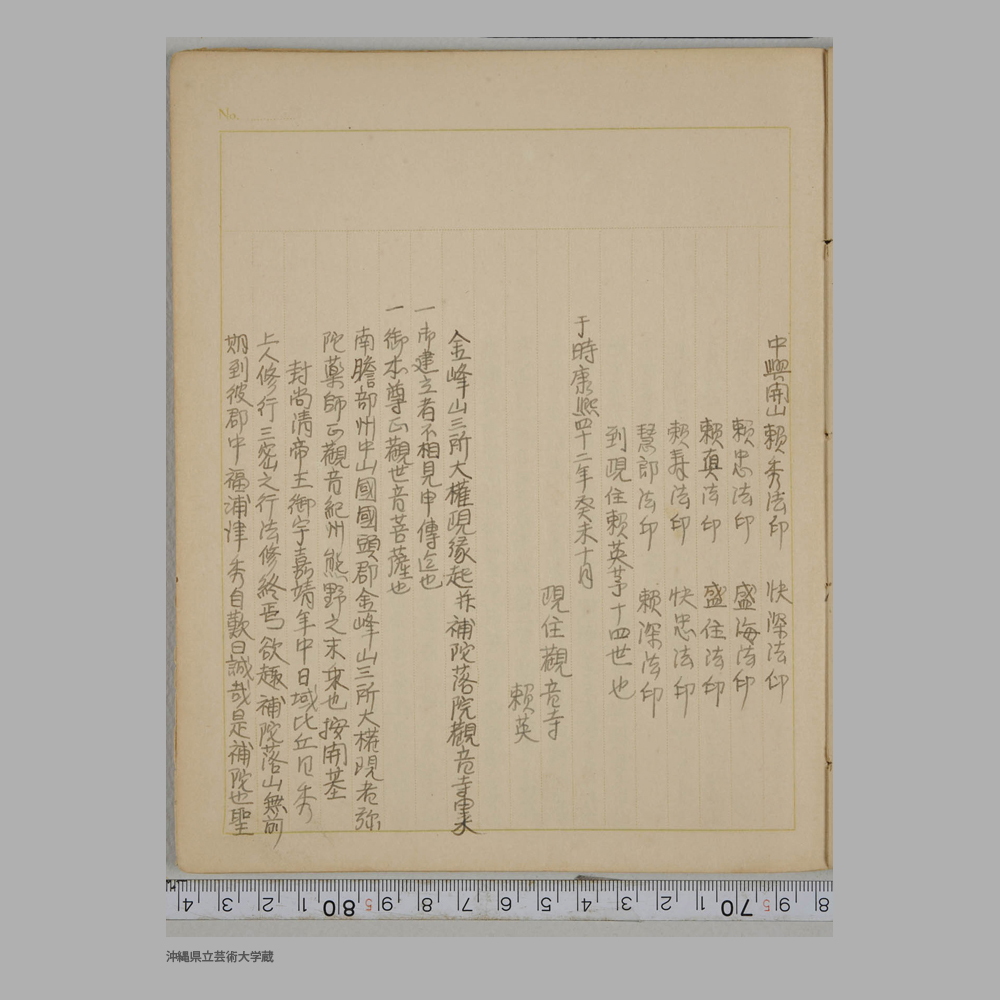 中興開山頼秀法印　快深法印
頼忠法印　盛海法印
頼真法印　盛住法印
頼寿法印　快忠法印
慧郎法印　頼深法印
到現住頼英茅十四世也
于時康熙四十二年癸未十月
現住觀音寺
頼英
金峰山三所大權現縁起并補陀落院觀音寺由来
一 御建立者不相見申傳迄也
一 御本尊正觀世音菩薩也
南膽部州中山國國頭郡金峰山三所大権現者弥
陀薬師正觀音紀州熊野之末乘也按開基
封尚清帝王御宇嘉靖年中日域比丘日秀
上人修行三密之行法修終焉欲趣補陀落山無前
期到彼郡中福浦津秀自歎曰誠哉是補陀也聖
No.
4 3 2 1 80 9 8 7 6 5 4 3 2 1 70 9 8
沖縄県立芸術大学蔵